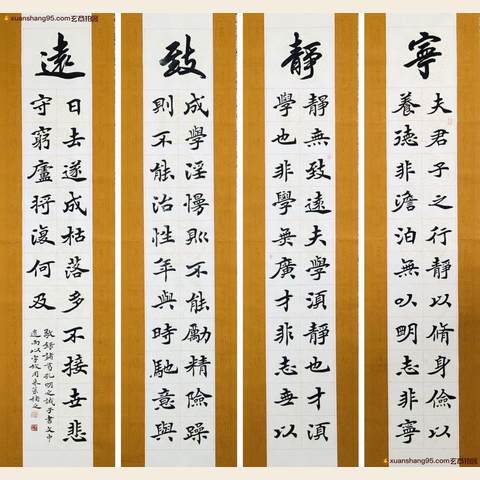 xuanshang95.com
xuanshang95.com
寧
夫君子之行靜以脩身儉以
養德非澹泊無以明志非寧
靜
靜無致遠夫學湏靜也才湏
學也非學無廣才非志無以
致
成學淫慢則不能勵精險躁
則不能治性年與時馳意與
遠
日去遂成枯落多不接世悲
守窮廬將復何及
敬錄諸葛孔明之誡子書文中
xuanshang95.com